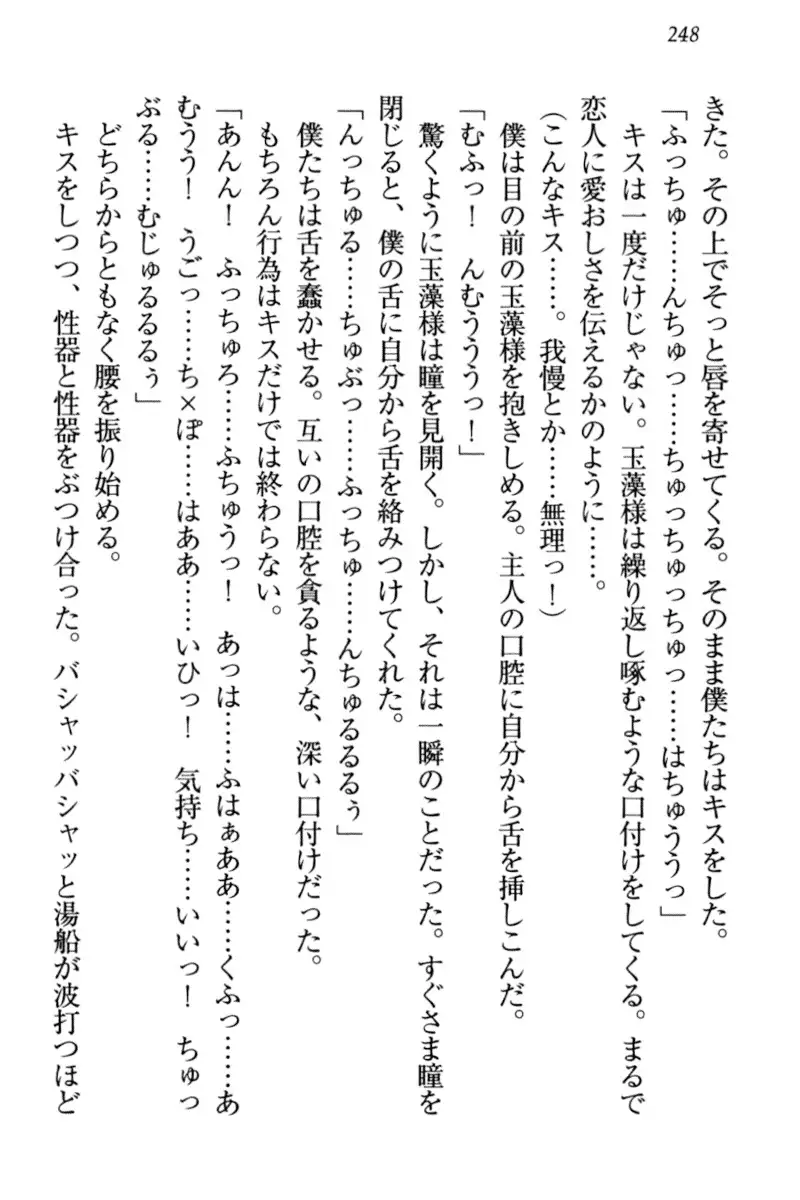 248
きた。その上でそっと唇を寄せてくる。そのまま僕たちはキスをした。
「ふっちゅ……んちゅっ……ちゅっちゅっちゅっ……はちゅううっ」
キスは一度だけじゃない。玉藻様は繰り返し啄むような口付けをしてくる。まるで
恋人に愛おしさを伝えるかのように……。
(こんなキス……。我慢とか……無理っ！)
僕は目の前の玉藻様を抱きしめる。主人の口腔に自分から舌を挿しこんだ。
「むふっ！　んむうううっ！」
驚くように玉藻様は瞳を見開く。しかし、それは一瞬のことだった。すぐさま瞳を
閉じると、僕の舌に自分から舌を絡みつけてくれた。
「んっちゅる……ちゅぶっ……ふっちゅ……んちゅるるるぅ」
僕たちは舌を蠢かせる。互いの口腔を貪るような、深い口付けだった。
もちろん行為はキスだけでは終わらない。
「あんん！　ふっちゅろ……ふちゅうっ！　あっは……ふはぁああ……くふっ……あ
むうう！　うごっ……ち×ぽ……はああ……いひっ！　気持ち……いいっ！　ちゅっ
ぶる……むじゅるるるぅ」
どちらからともなく腰を振り始める。
キスをしつつ、性器と性器をぶつけ合った。バシャッバシャッと湯船が波打つほど